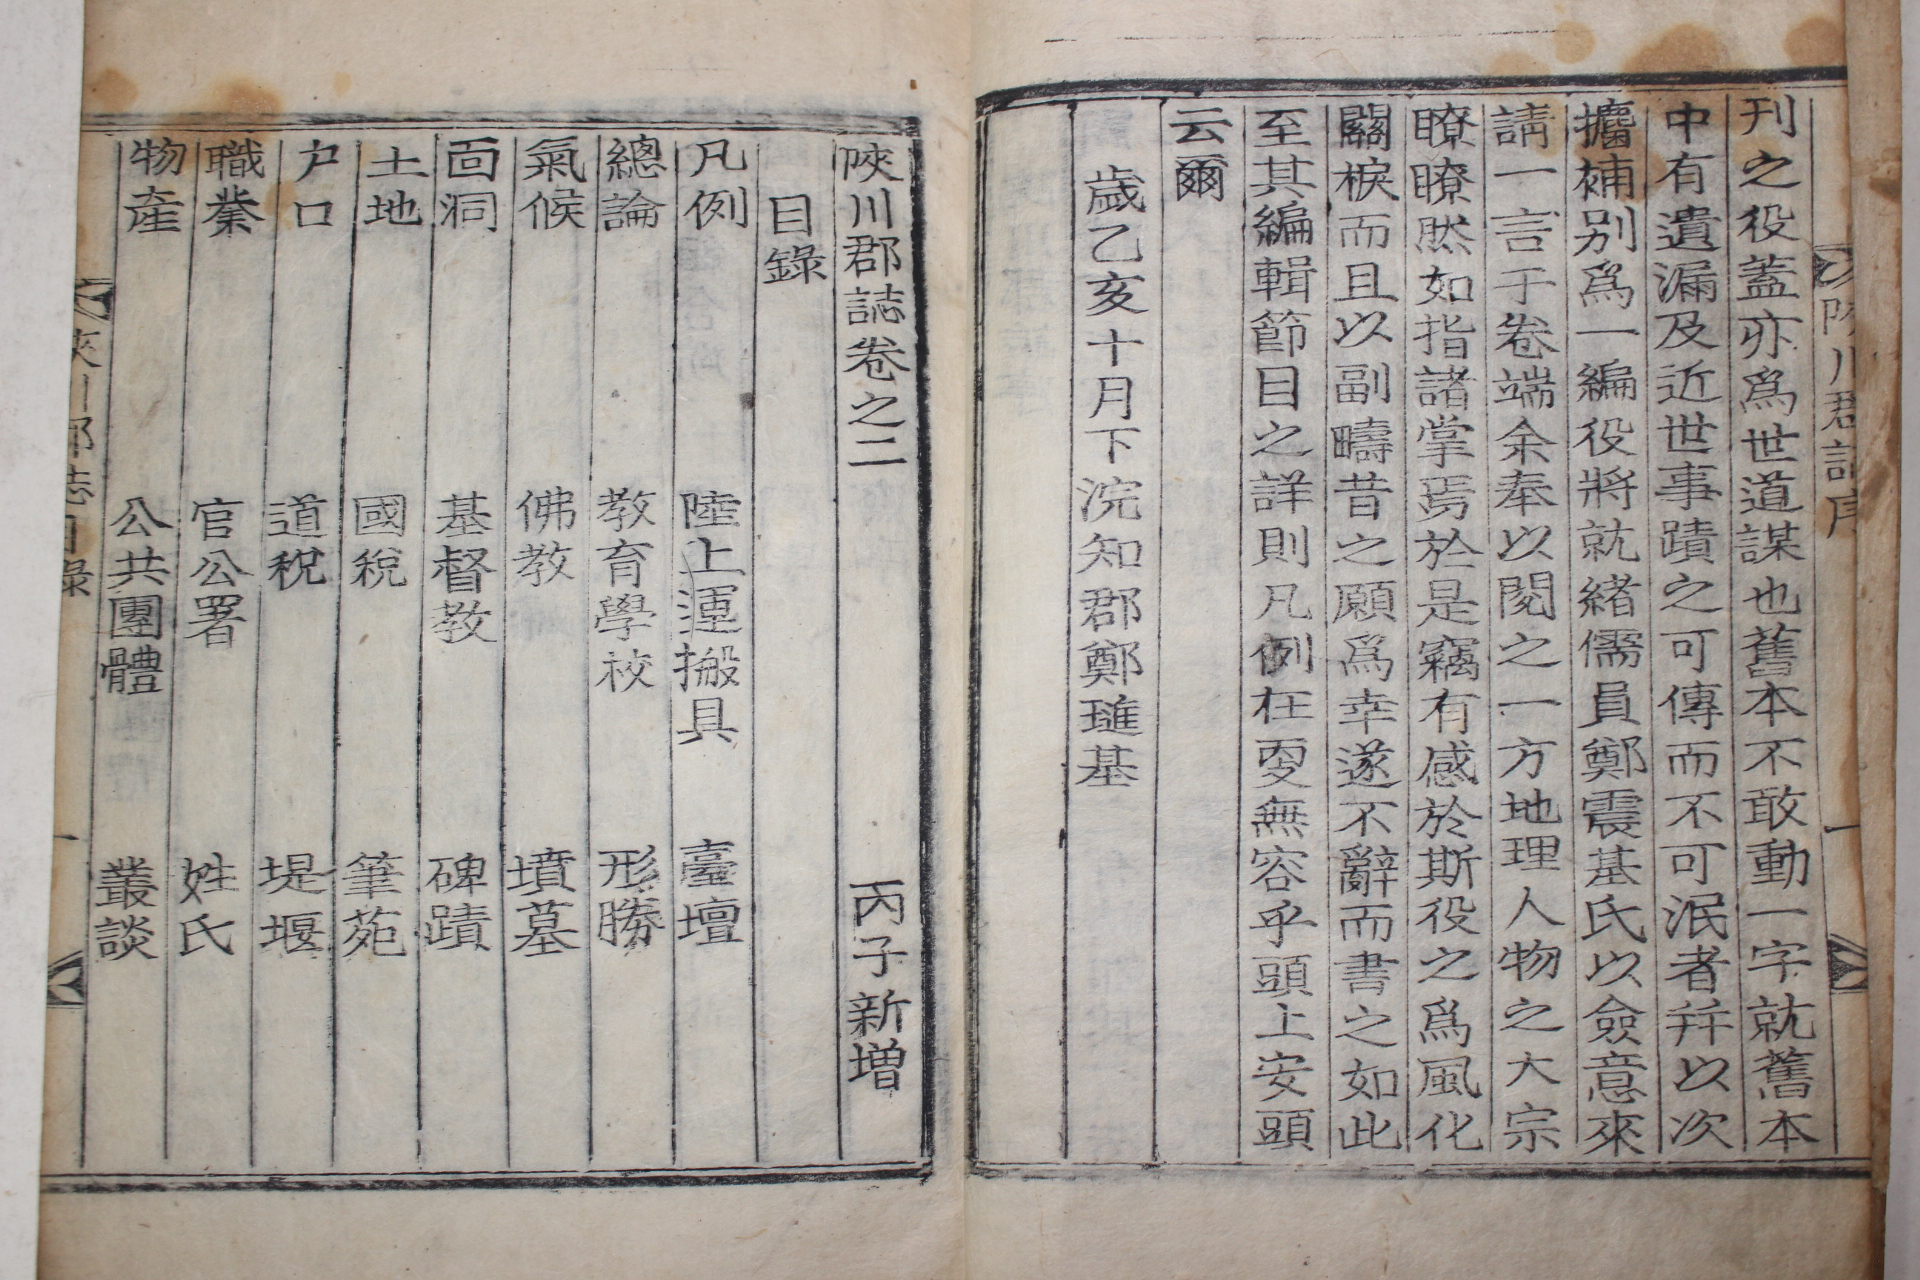 刊之役蓋亦爲世道謀也舊本不敢動一字就舊本
中有遺漏及近世事蹟之可傳而不可泯者幷以次
攟補别爲一編役將就緒儒員鄭震基氏以僉意來
請一言于卷端余奉以閱之一方地理人物之大宗
瞭瞭然如指諸掌焉於是竊有感於斯役之爲風化
關棙而且以副疇昔之願爲幸遂不辭而書之如此
至其編輯節目之詳則凡例在耎無容乎頭上安頭
云爾
歲乙亥十月下浣知郡鄭璡基
陜川郡誌序
一
陜川郡誌卷之二 丙子新增
目錄
凡例 陸上運搬具 臺壇
總論 教育學校 形勝
氣候 佛教 墳墓
面洞 基督教 碑蹟
土地 國稅 筆苑
户口 道稅 堤堰
職業 官公署 姓氏
物產 公共團體 叢談
陜川郡誌目錄
一